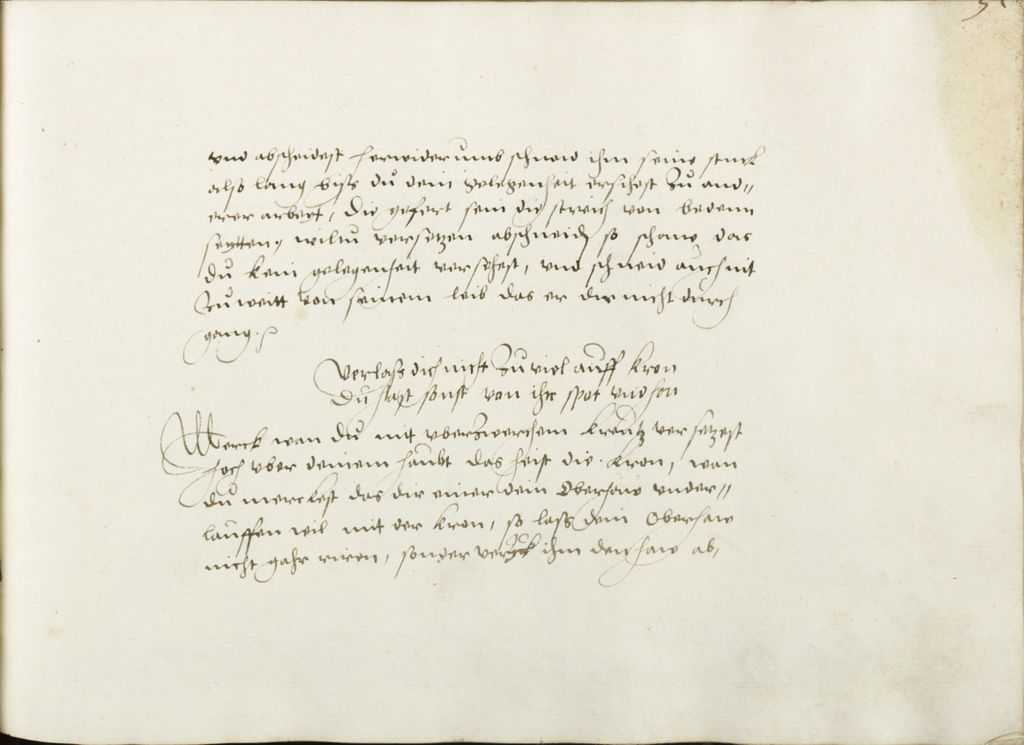 vnd abscheidest herwiderumb schneid ihm seine stuck
also lang biss du dein gelegenheit ersihest zu and„
erer arbeyt, die gefert sein die streich von beden
seytten, wiltu versetzen abschneiden so schaw das
du kein gelegenheit versihest, vnd schneid auch nit
zu weitt von seinem leib das er dir nicht durch
gang.
Verlass dich nicht zu viel auff kron
du hast sonst von ihr spot vnd hon
Merck wan du mit vberzwerchem kreutz versetzest
hoch vber deinem haubt das heist die kron, wan
du merckest das dir einer dein Oberhaw vnder„
lauffen wil mit der kron, so lass dein Oberhaw
nicht gahr riren, sonder verzuck ihm den haw ab,